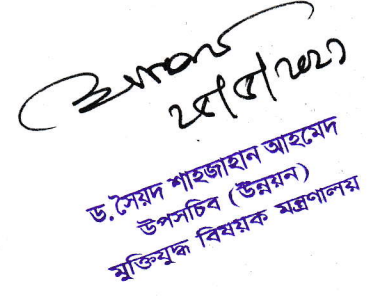 ড. সৈয়দ শাহজাহান আহমেদ
উপসচিব (উন্নয়ন)
মুক্তিযুদ্ধ বিষয়ক মন্ত্রণালয়